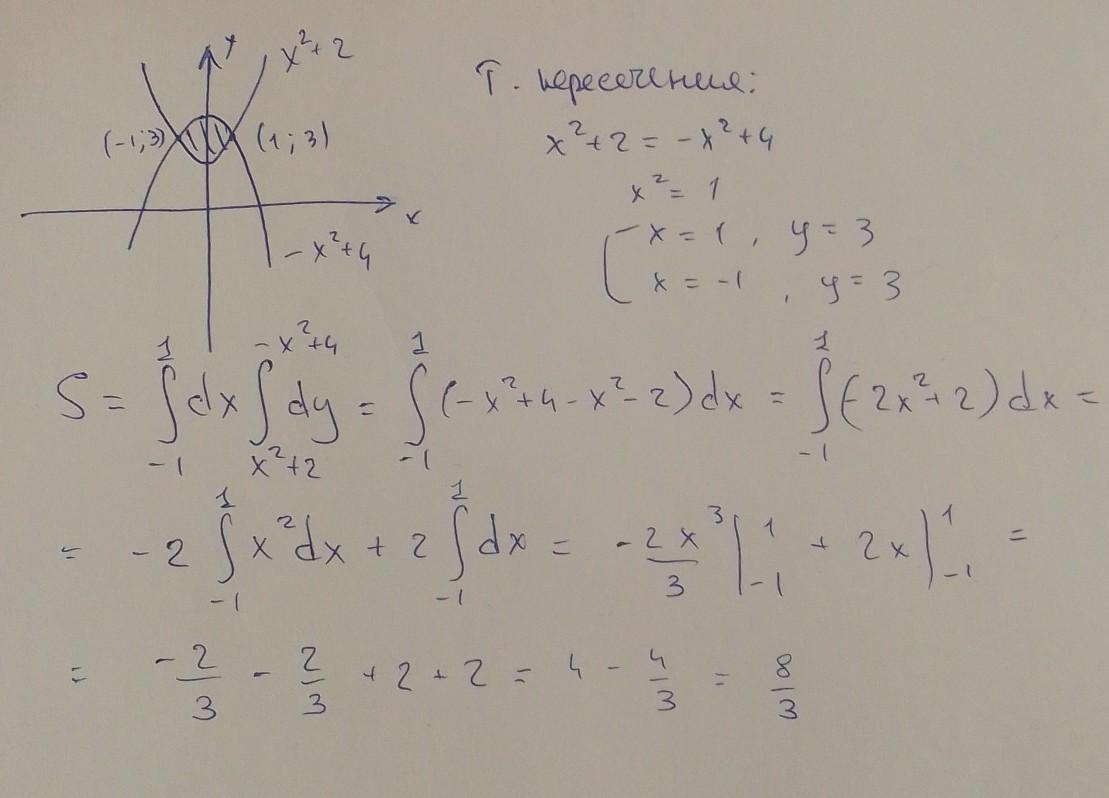 y
x²+2
(-1;3)
(1;3)
x
-x²+4
Т. пересечения:
x²+2 = -x²+4
x² = 1
[ x = 1, y = 3
x = -1, y = 3
S = ∫₋₁¹ dx ∫_{x²+2}^{-x²+4} dy = ∫₋₁¹ (-x²+4-x²-2)dx = ∫₋₁¹ (-2x²+2)dx =
= -2 ∫₋₁¹ x²dx + 2 ∫₋₁¹ dx = -2x³/3 |₋₁¹ + 2x |₋₁¹ =
= -2/3 - 2/3 + 2 + 2 = 4 - 4/3 = 8/3